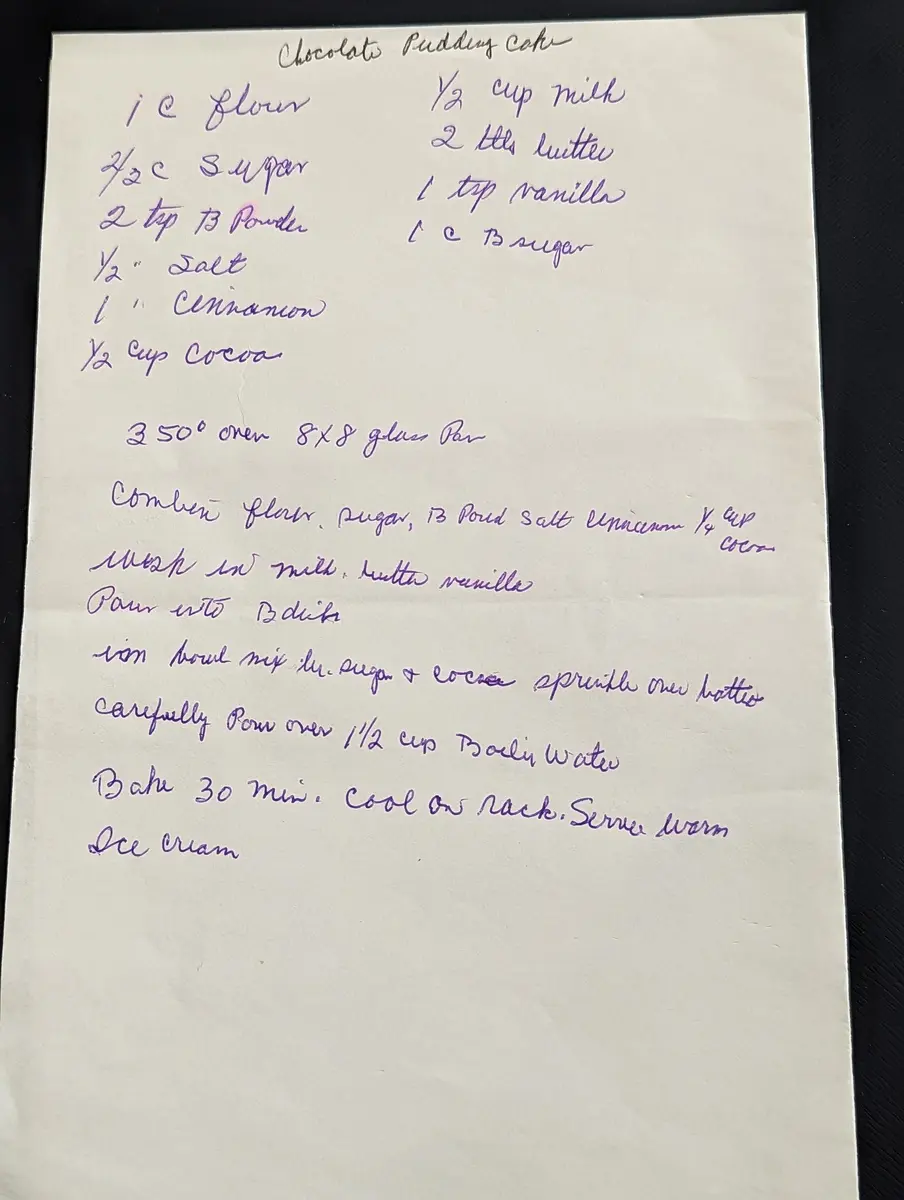 Chocolate Pudding Cake
1 C flour
2/3 C Sugar
2 tsp B Powder
1/2 " Salt
1 " Cinnamon
1/2 Cup Cocoa
1/2 cup milk
2 tbls butter
1 tsp vanilla
1 C B sugar
350° oven 8x8 glass Pan
Combin flour, sugar, B Powd Salt Cinnamon 1/4 cup
cocoa
wisk in milk, butter vanilla
Pour into B dish
in bowl mix br. sugar + cocoa sprinkle over batter
carefully Pour over 1 1/2 cup Boilin Water
Bake 30 min. Cool on rack. Serve warm
Ice cream